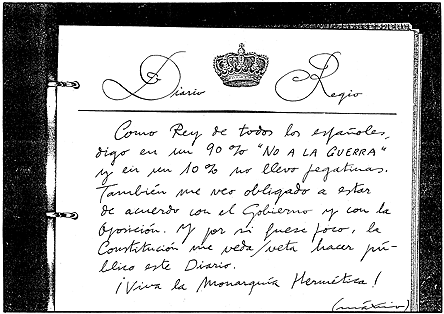 Diario Regio
Como Rey de todos los españoles,
digo en un 90% "NO A LA GUERRA"
y en un 10% no llevo pegatinas.
También me veo obligado a estar
de acuerdo con el Gobierno y con la
Oposición. Y por si fuese poco, la
Constitución me veda/veta hacer pú-
blico este Diario.
¡Viva la Monarquía Hermética!
(máximo)